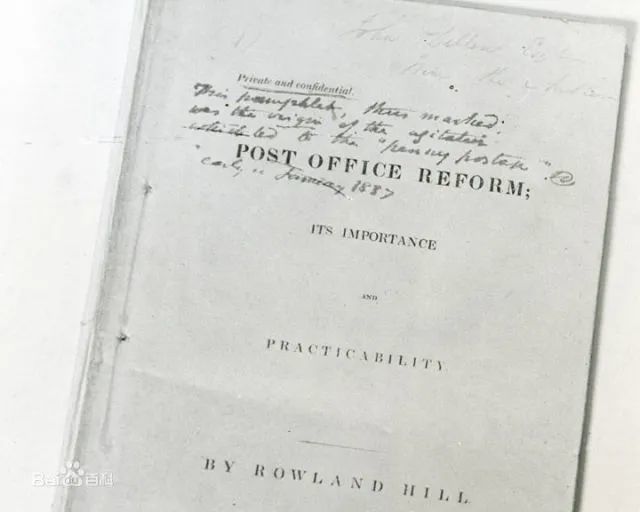 John
from the Author
Private and confidential.
This pamphlet, thus marked,
was the origin of the agitation
which led to the "penny postage".
"early" January 1837
POST OFFICE REFORM;
ITS IMPORTANCE
AND
PRACTICABILITY
BY ROWLAND HILL
Bai百科